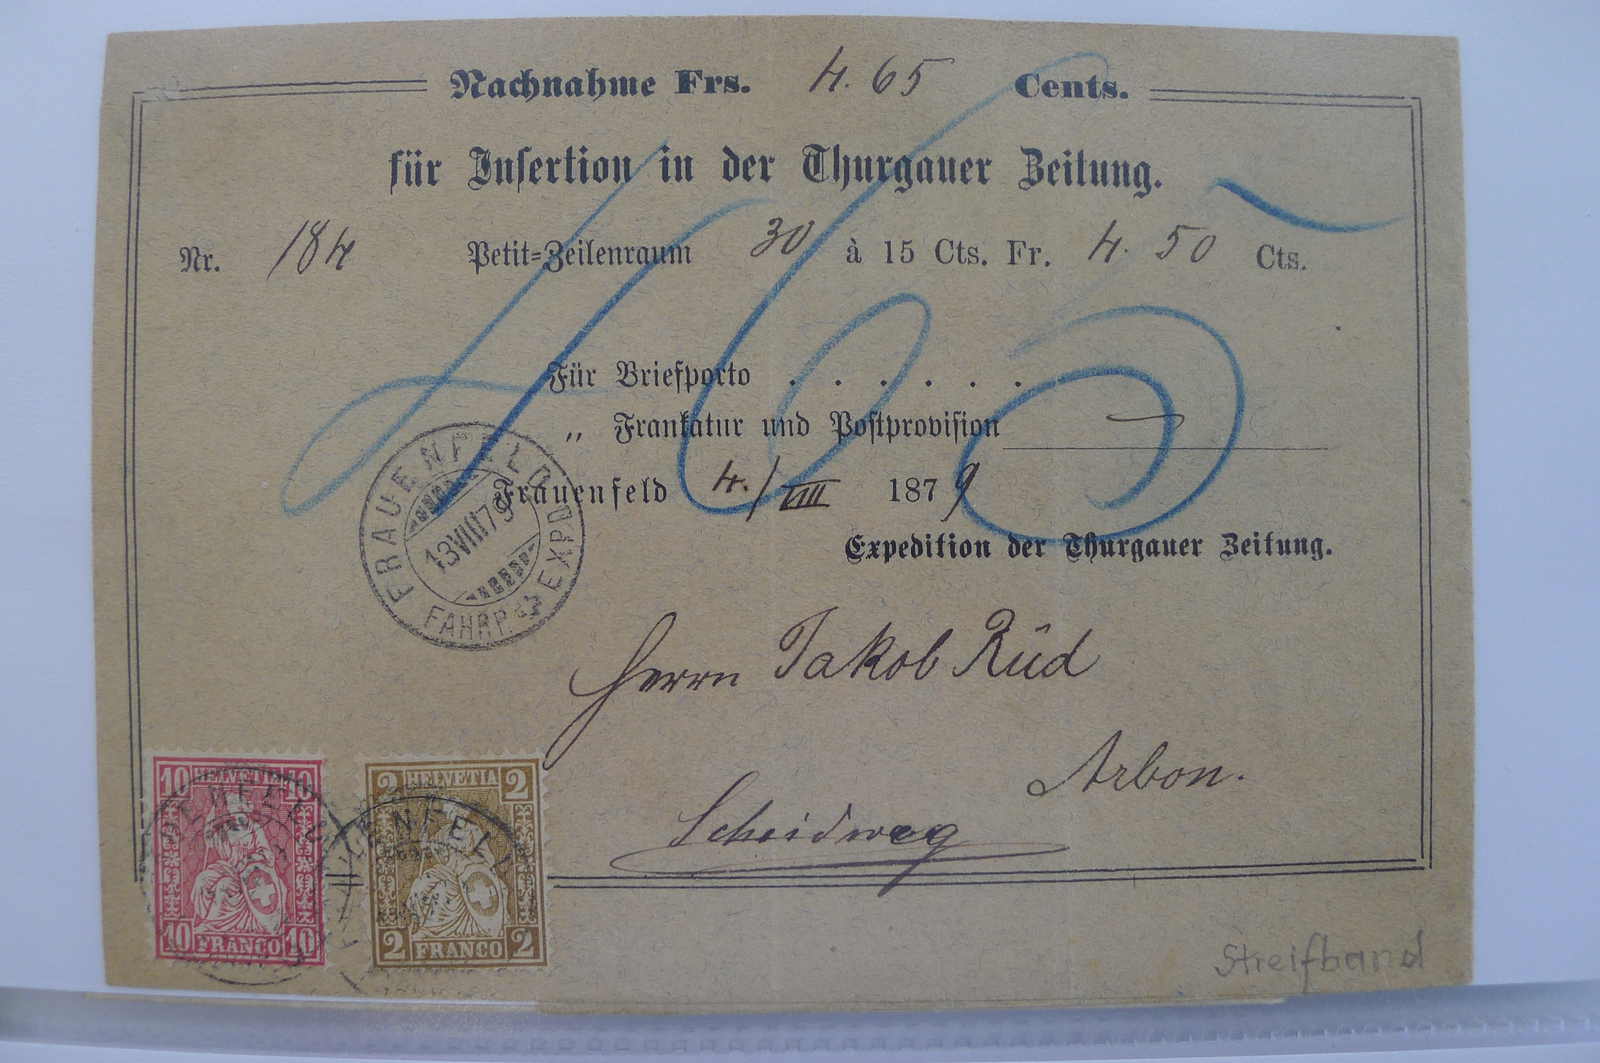 Nachnahme Frs. 4. 65 Cents.
für Insertion in der Thurgauer Zeitung.
Nr. 184 Petit-Zeilenraum 30 à 15 Cts. Fr. 4. 50 Cts.
465
Für Briefporto . . . . . .
„ Frankatur und Postprovision
Frauenfeld 4./VIII 1879
Expedition der Thurgauer Zeitung.
FRAUENFELD
13 VIII 79
FAHRP. EXPD
Herrn Jakob Rüd
Arbon.
Scheidweg
10 HELVETIA 10
10 FRANCO 10
2 HELVETIA 2
2 FRANCO 2
Streifband